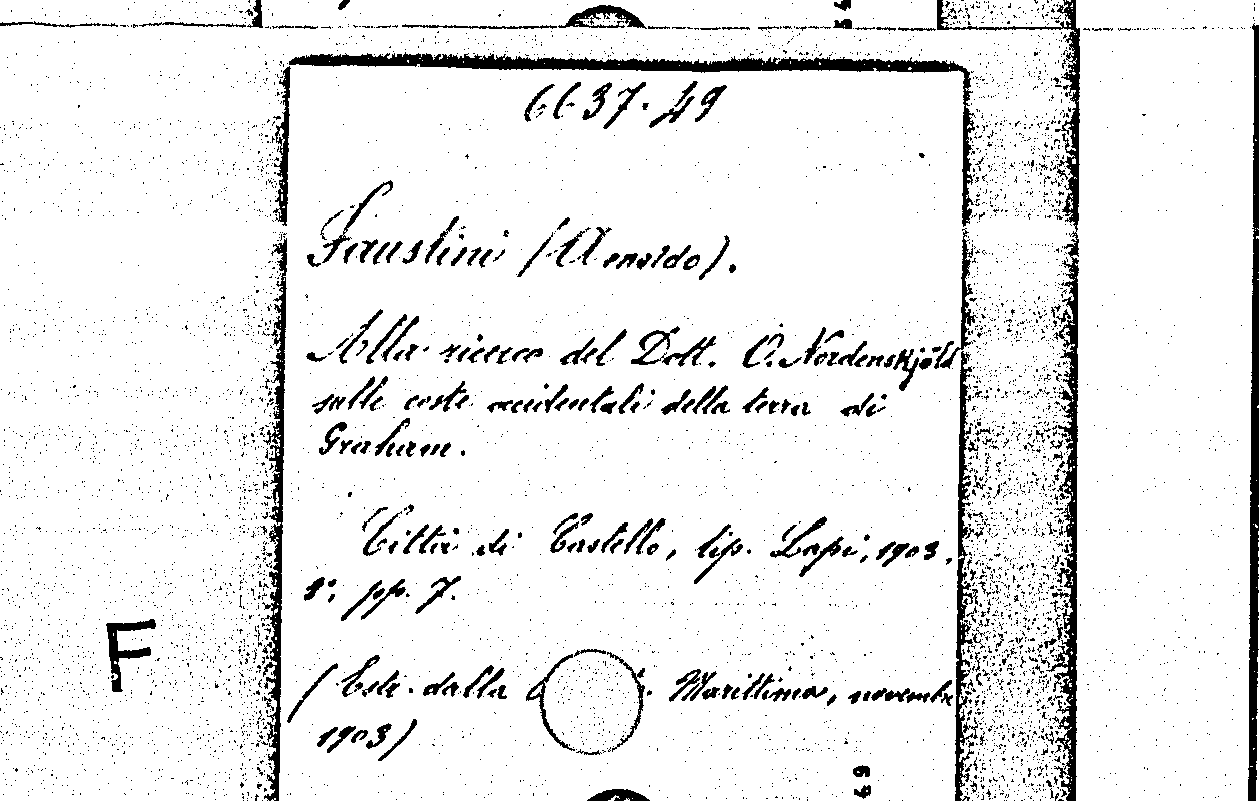 6637.49
Faustini (Arnaldo).
Alla ricerca del Dott. O. Nordenskjöld
sulle coste occidentali della terra di
Graham.
Città di Castello, tip. Lapi, 1903.
8°, pp. 7.
(Estr. dalla Marittima, novembre
1903)
F
49